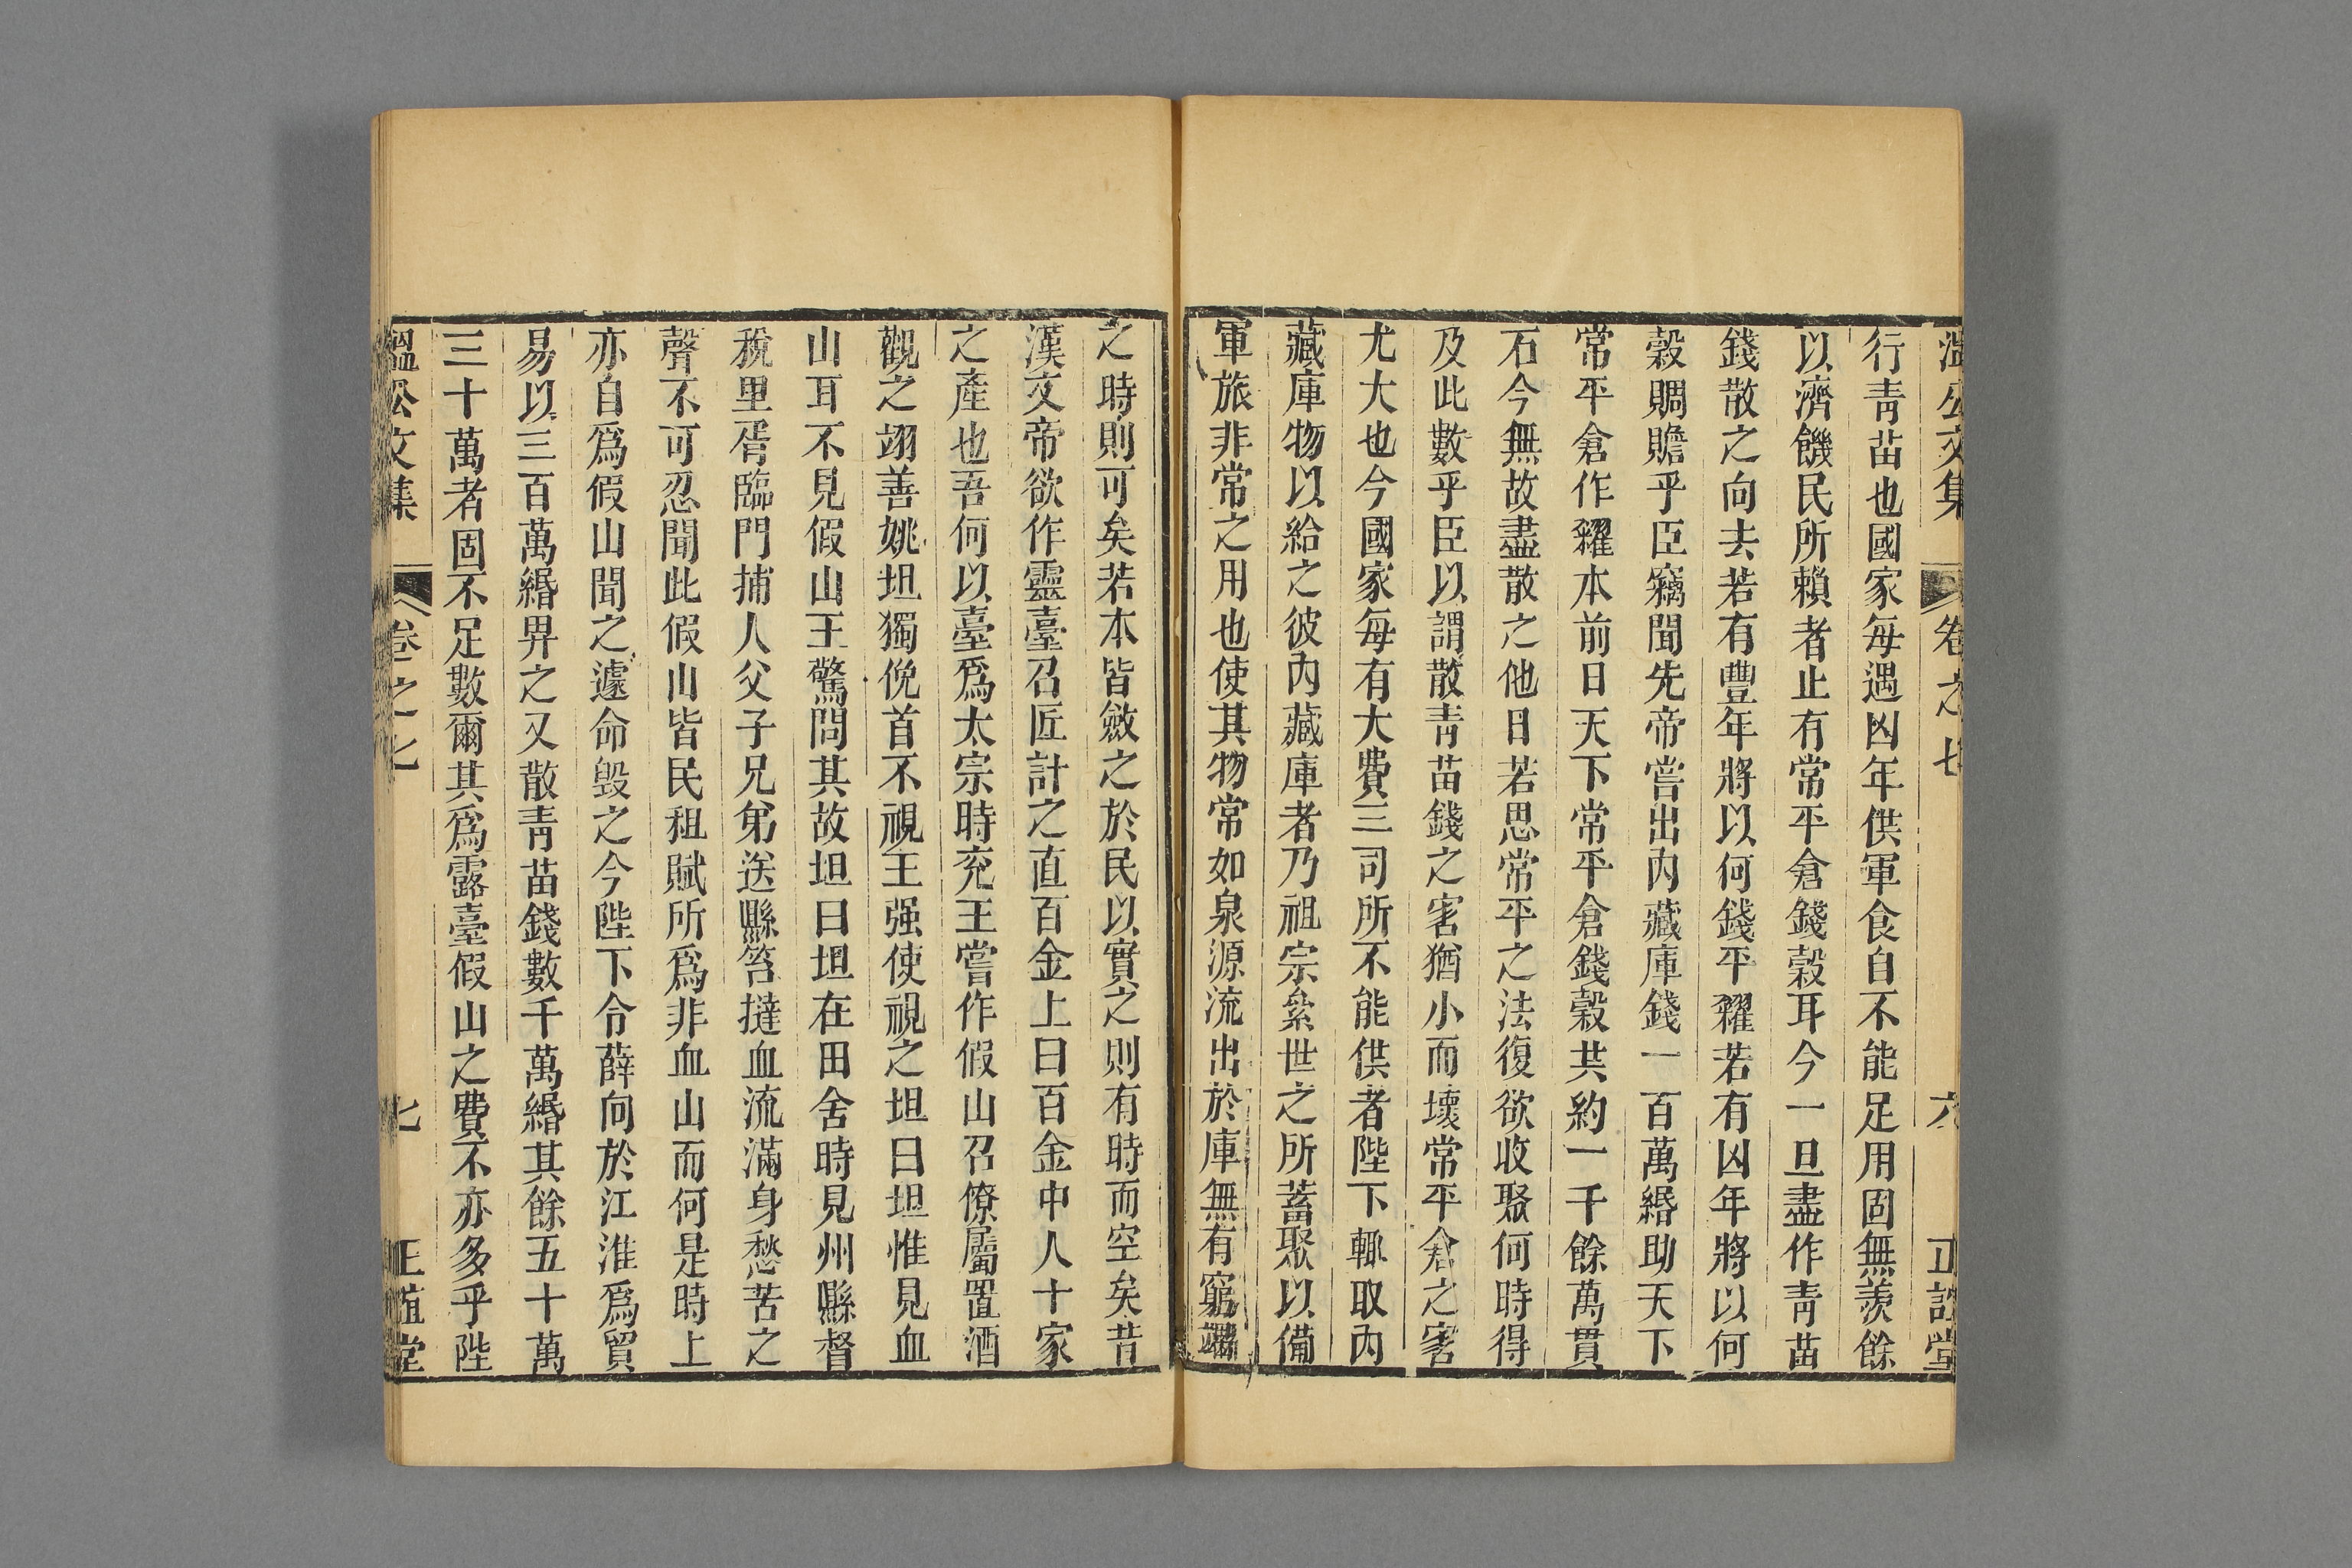 溫公文集 卷之七 六 正誼堂
行青苗也國家每遇凶年供軍食自不能足用固無羨餘
以濟饑民所賴者止有常平倉錢穀耳今一旦盡作青苗
錢散之向去若有豐年將以何錢平糴若有凶年將以何
穀賙贍乎臣竊聞先帝嘗出內藏庫錢一百萬緡助天下
常平倉作糴本前日天下常平倉錢穀共約一千餘萬貫
石今無故盡散之他日若思常平之法復欲收聚何時得
及此數乎臣以謂散青苗錢之害猶小而壞常平倉之害
尤大也今國家每有大費三司所不能供者陛下輒取內
藏庫物以給之彼內藏庫者乃祖宗絫世之所蓄聚以備
軍旅非常之用也使其物常如泉源流出於庫無有窮竭
之時則可矣若本皆斂之於民以實之則有時而空矣昔
漢文帝欲作靈臺召匠計之直百金上曰百金中人十家
之產也吾何以臺爲太宗時兖王嘗作假山召僚屬置酒
觀之翊善姚坦獨俛首不視王强使視之坦曰坦惟見血
山耳不見假山王驚問其故坦曰坦在田舍時見州縣督
稅里胥臨門捕人父子兄弟送縣笞撻血流滿身愁苦之
聲不可忍聞此假山皆民租賦所爲非血山而何是時上
亦自爲假山聞之遽命毀之今陛下令薛向於江淮爲貿
易以三百萬緡畀之又散青苗錢數千萬緡其餘五十萬
三十萬者固不足數爾其爲露臺假山之費不亦多乎陛
溫公文集 卷之七 七 正誼堂